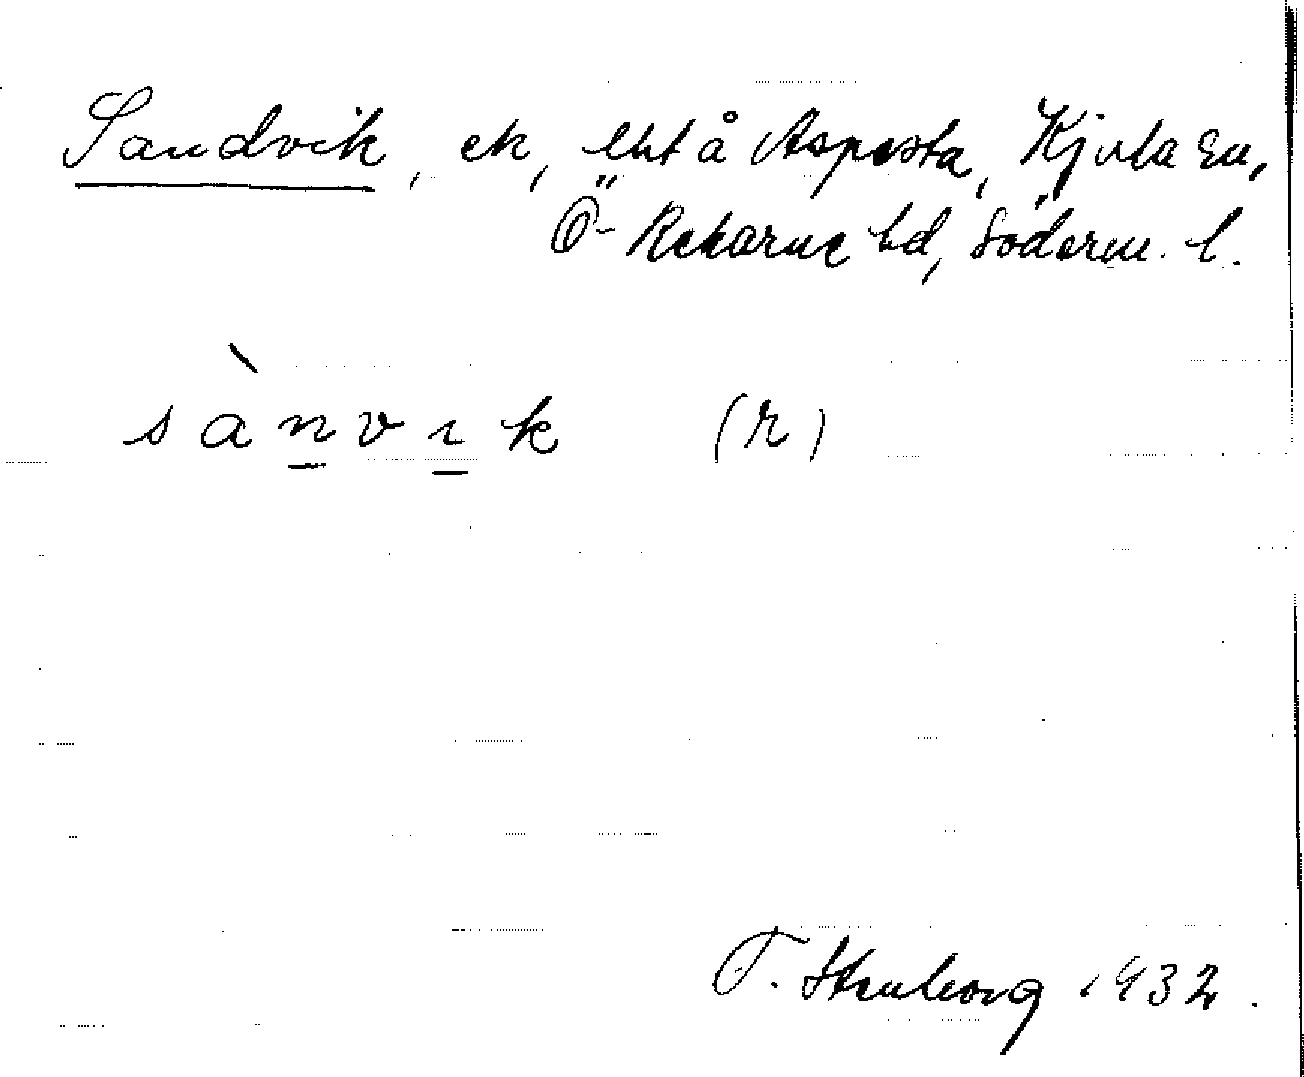 Sandvik, ek, lht å Aspesta, Kjula sn,
Ö-Rekarne hd, Söderm. l.
sànvık (r)
T. Stenborg 1932.